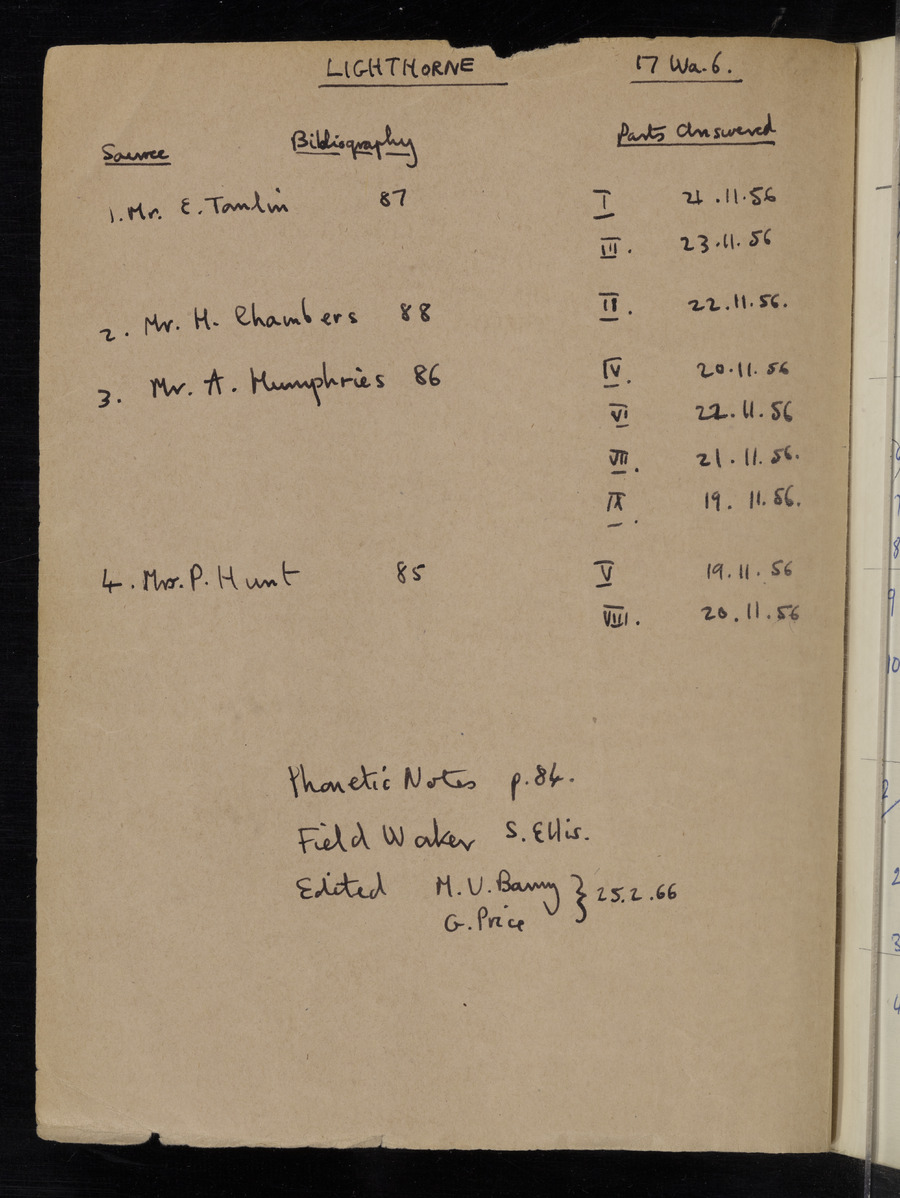 LIGHTHORNE 17 Wa.6.
Source Bibliography Parts Answered
1. Mr. E. Tomlin 87 I 21.11.56
III. 23.11.56
2. Mr. H. Chambers 88 II. 22.11.56.
3. Mr. A. Humphries 86 IV. 20.11.56
VI 22.11.56
VII. 21.11.56.
IX. 19.11.56.
4. Mrs. P. Hunt 85 V 19.11.56
VIII. 20.11.56
Phonetic Notes p.84.
Field Worker S. Ellis.
Edited M.V. Barry } 25.2.66
G. Price